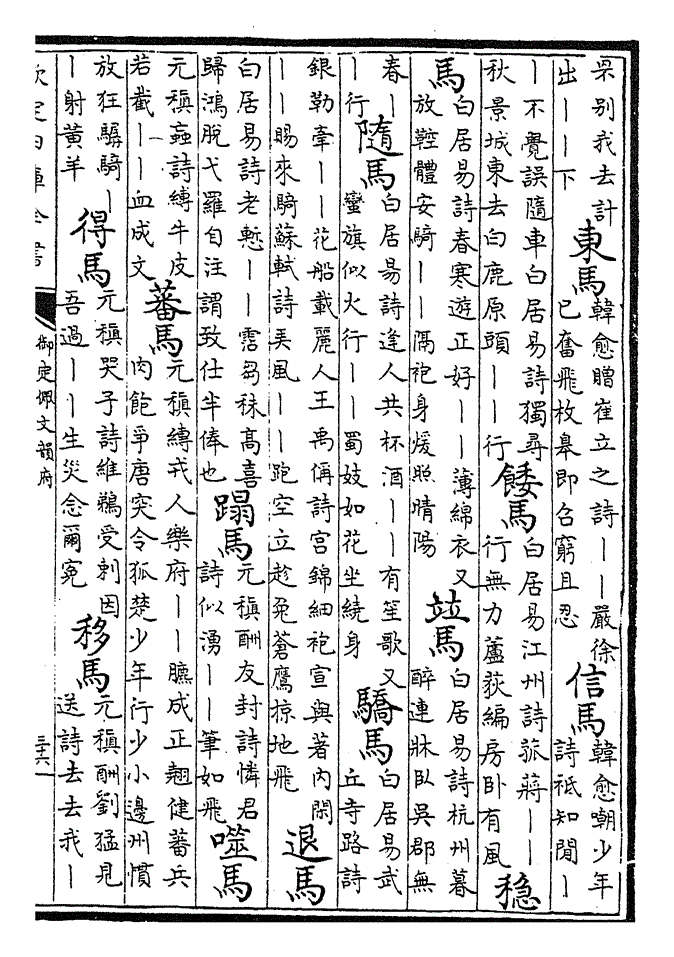 吳别我去計
出｜｜下
東馬
韓愈贈崔立之詩｜｜嚴徐
已奮飛枚臯即召窮且忍
信馬
韓愈嘲少年
詩祗知閒｜
｜不覺誤隨車白居易詩獨尋
秋景城東去白鹿原頭｜｜行
餧馬
白居易江州詩菰蔣｜｜
行無力蘆荻編房卧有風
穏
馬
白居易詩春寒遊正好｜｜薄綿衣又
放鞚體安騎｜｜隔袍身煖照晴陽
竝馬
白居易詩杭州暮
醉連牀卧吳郡無
春｜
｜行
隨馬
白居易詩逢人共杯酒｜｜有笙歌又
蠻旗似火行｜｜蜀妓如花坐繞身
驕馬
白居易武
丘寺路詩
銀勒牽｜｜花船載麗人王禹偁詩宫錦細袍宣與著内閑
｜｜賜來騎蘇軾詩美風｜｜跑空立趁兔蒼鷹掠地飛
退馬
白居易詩老慙｜｜霑芻秣高喜
歸鴻脫弋羅自注謂致仕半俸也
蹋馬
元稹酬友封詩憐君
詩似湧｜｜筆如飛
噬馬
元稹蝱詩縛牛皮
若截｜｜血成文
蕃馬
元稹縛戎人樂府｜｜臕成正翹健蕃兵
肉飽爭唐突令狐楚少年行少小邊州慣
放狂驏騎｜
｜射黄羊
得馬
元稹哭子詩維鵜受刺因
吾過｜｜生災念爾寃
移馬
元稹酬劉猛見
送詩去去我｜
欽定四庫全書
御定佩文韻府